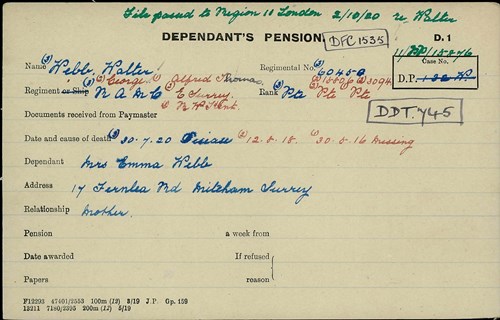 File passed to Region 10 London 2/10/20 re Walter
DEPENDANT'S PENSION.
DFC 1535
D. 1
Case No.
D.P.
Name Webb, Walter (2) George (3) Alfred Thomas
Regimental No. 60450
Regiment or Ship R A M C (2) E Surrey. (3) R W Kent.
Rank Pte Pte Pte
DDT.745
Documents received from Paymaster
Date and cause of death 30.7.20 Disease (2) 12.8.18. (3) 30.5.16 missing
Dependant Mrs Emma Webb
Address 17 Fernlea Rd Mitcham Surrey
Relationship Mother.
Pension a week from
Date awarded If refused
Papers reason
F12293 47401/2553 100m (12) 3/19 J.P. Gp. 159
13211 7180/2395 200m (12) 5/19